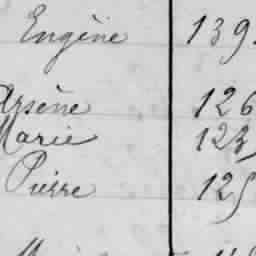 Eugène 139
Arsène 126
Marie 123
Pierre 125